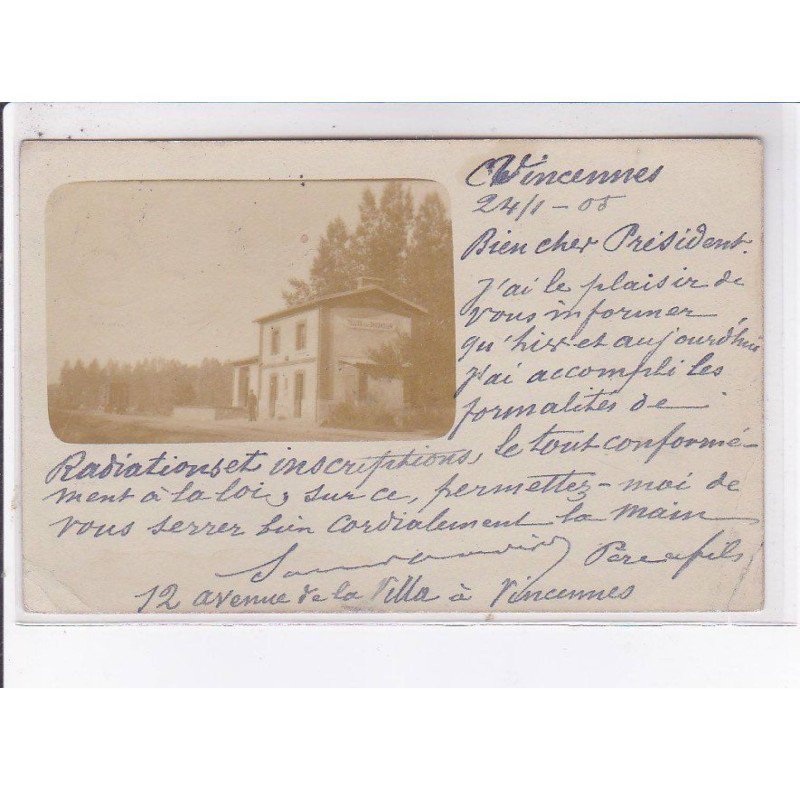 Vincennes
24/1 - 05
Bien cher Président.
J'ai le plaisir de
vous informer
qu'hier et aujourd'hui
J'ai accompli les
formalités de
Radiations et inscriptions, le tout conformé-
ment à la loi, sur ce, permettez-moi de
vous serrer bien cordialement la main
Père & fils
12 avenue de la Villa à Vincennes